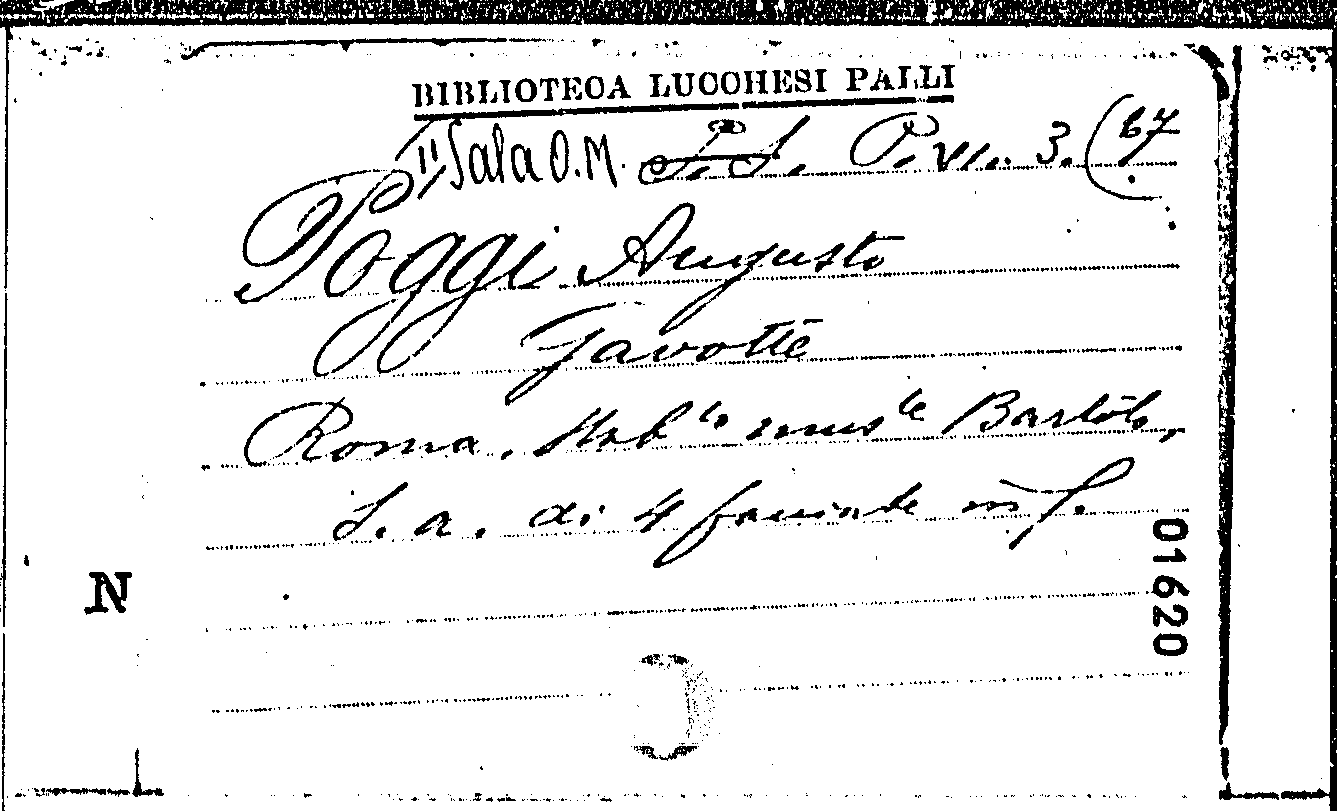 BIBLIOTECA LUCCHESI PALLI
II Sala O.M. P. VI. 3. (67
Poggi Augusto
Gavotte
Roma, Stab.to mus.le Bartolo,
S. a. di 4 facciate in f.
N
01620